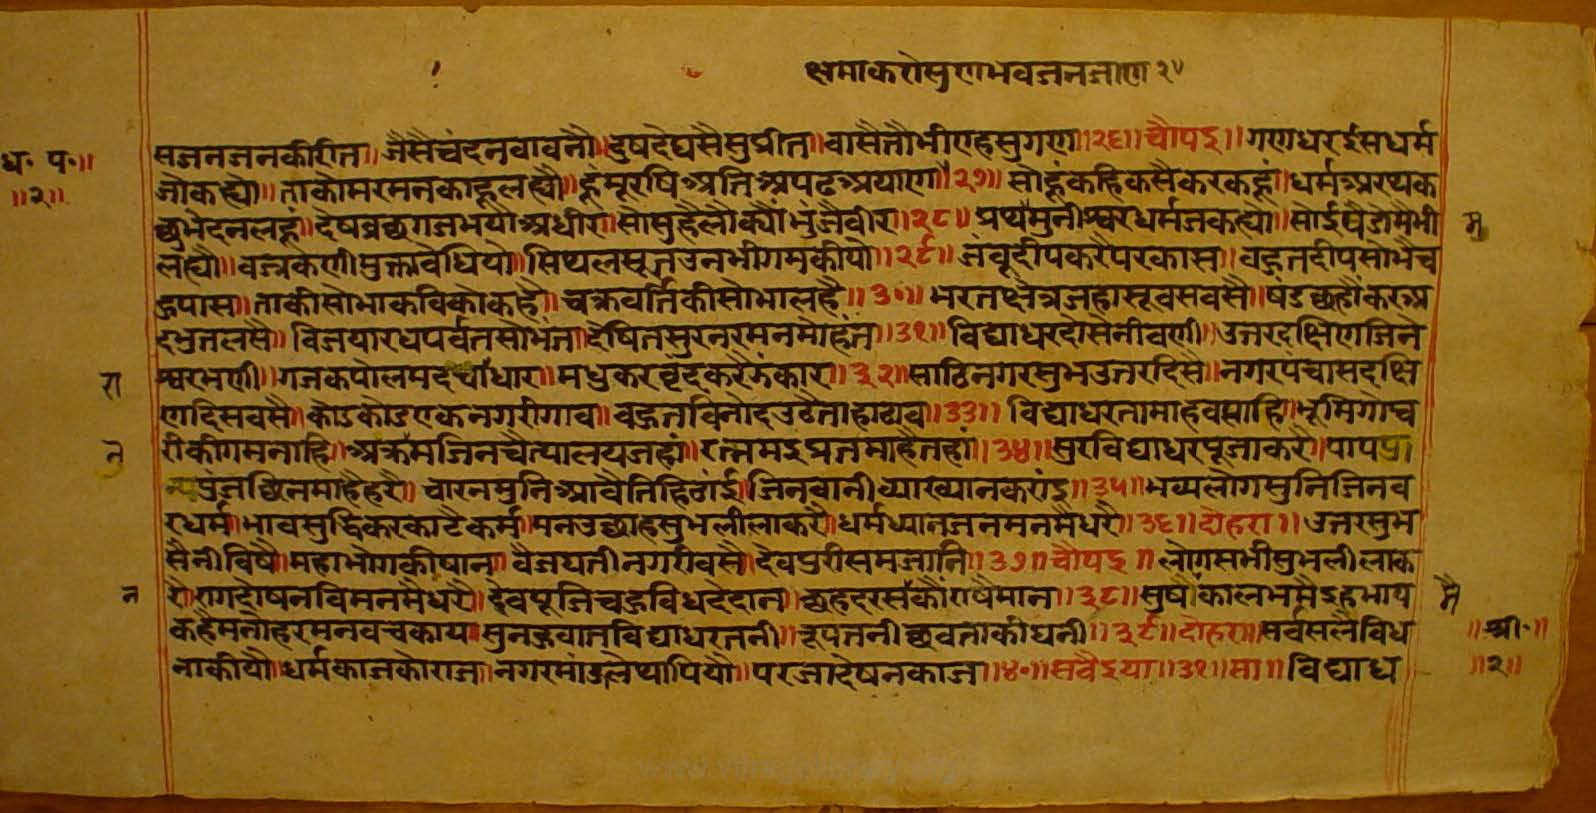 क्षमाकरोसुणभवजनजाण २५
सजनजनकीरीत॥जैसैचंदनवावनौ॥दुषदेघसैसुप्रीत॥वासैतौभीएहसुगण॥२६॥चौपइ॥गणधरईसधर्म
ध॰ प॰॥
जोकह्यौ॥ताकोमरमनकाहूलह्यौ॥हूमूरषिअतिअपढअयाण॥२७॥सोहूंकहिकसैकरकहूं॥धर्मअरथक
॥२॥
छुभेदनलहूं॥देषव्रछगजभयोअधीर॥सोसुहैलौक्यौंभुंजैवीर॥२८॥प्रथममुनीश्वरधर्मजकह्यो॥सोईपैडोमैभी
लह्यौ॥वज्रकणीमुक्तावेधियो॥सिथलसूत्रउनभीगमकीयो॥२९॥जंवूदीपकरैपरकास॥वहुतदीपसोभैच
हुपास॥ताकीसोभाकविकोकहै॥चक्रवर्त्तिकीसोभालहै॥३०॥भरतक्षेत्रजहासूवसवसै॥षंडछहौंकरअ
दभुतलसै॥विजयारधपर्वतसोभंत॥देषितसुरनरमनमोहंत॥३१॥विद्याधरदोसेनीवणी॥उत्तरदक्षिणजिन
श्वरभणी॥गजकपोलमदचौंधार॥मधुकरवृंदकरैझंकार॥३२॥साठिनगरसुभउत्तरदिसै॥नगरपंचासदक्षि
रा
णदिसवसै॥कोडकोडएकनगरीगाव॥वहुतविनोदउठैताहाठाव॥३३॥विद्याधरतामाहवसाहि॥भूमिगोच
रीकीगमनाहि॥अक्रमजिनचैत्यालयजहां॥रत्नमइप्रतमाहैतहां॥३४॥सुरविद्याधरपूजाकरै॥पापप्र
पुंजछिनमाहैहरै॥चारनमुनिआवैतिहिठांई॥जिनवानीव्याख्यानकरांइ॥३५॥भव्यलोगसुनिजिनव
रधर्म॥भावसुद्धिकरकाटैकर्म॥मनउछाहसुभलीलाकरै॥धर्मध्यानजनमनमैधरै॥३६॥दोहरा॥उत्तरसुभ
सैनीविषै॥महाभोगकीषान॥वैजयतीनगरीवसै॥देवपुरीसमजानि॥३७॥चौपइ॥लोगसभीसुभलीलाक
रै॥रागदोषनविमनमैधरै॥देवपूजिचहुविधदेदान॥छहदरसकौराषैमान॥३८॥सुषौंकालभमैइहभाय
न
मै
कहैमनोहरमनवचकाय॥सुनहुवातविद्याधरतनी॥रूपतनीछवताकीघनी॥३९॥दोहरा॥सर्वसलैविध
॥श्री॰॥
नाकीयौ॥धर्मकाजकोराज॥नगरमांडलेथापियौ॥परजादेषनकाज॥४०॥सवैइया॥३१॥सा॥विद्याध
॥२॥